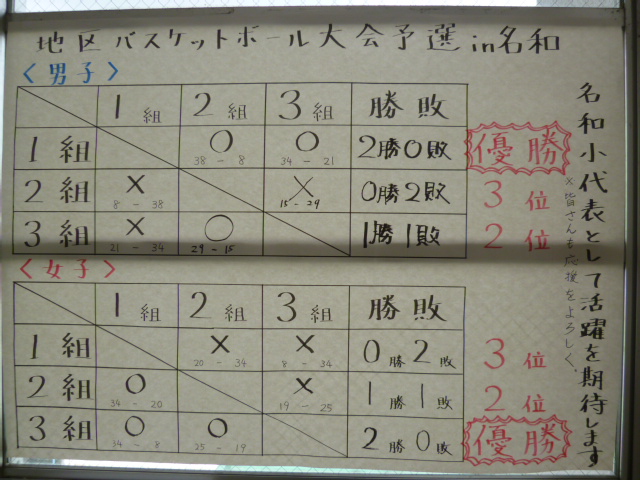 地区バスケットボール大会予選in名和
<男子>
1組 2組 3組 勝敗
1組 ○ ○ 2勝0敗 優勝
38-8 34-21
2組 × × 0勝2敗 3位
8-38 15-29
3組 × ○ 1勝1敗 2位
21-34 29-15
<女子>
1組 2組 3組 勝敗
1組 × × 0勝2敗 3位
20-34 8-34
2組 ○ × 1勝1敗 2位
34-20 19-25
3組 ○ ○ 2勝0敗 優勝
34-8 25-19
名和小代表として活躍を期待します
×皆さんも応援をよろしく。